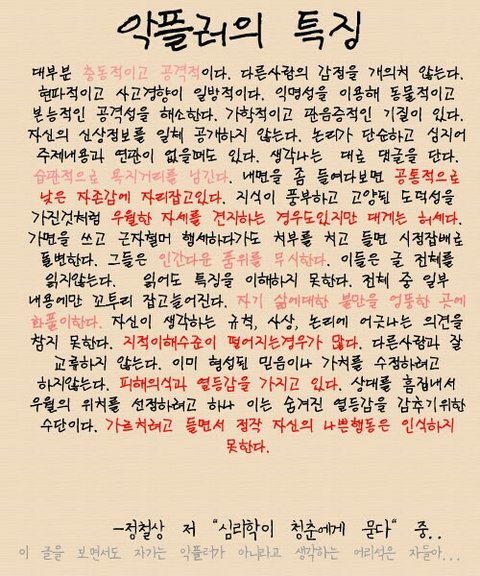 악플러의 특징
대부분 충동적이고 공격적이다. 다른사람의 감정을 개의치 않는다.
현파적이고 사고경향이 일방적이다. 익명성을 이용해 동물적이고
본능적인 공격성을 해소한다. 가학적이고 관음증적인 기질이 있다.
자신의 신상정보를 일체 공개하지 않는다. 논리가 단순하고 심지어
주제내용과 연관이 없을때도 있다. 생각나는 대로 댓글을 단다.
습관적으로 욕지거리를 남긴다. 내면을 좀 들여다보면 공통적으로
낮은 자존감에 자리잡고있다. 지식이 풍부하고 고양된 도덕성을
가진것처럼 우월한 자세를 견지하는 경우도있지만 대게는 허세다.
가면을 쓰고 근자혈머 행세하다가도 처부를 처고 들면 시정잡배로
돌변한다. 그들은 인간다운 품위를 무시한다. 이들은 글 전체를
읽지않는다. 읽어도 특징을 이해하지 못한다. 전체 중 일부
내용에만 꼬투리 잡고늘어진다. 자기 삶에대한 불만을 엉뚱한 곳에
화풀이한다. 자신이 생각하는 규칙, 사상, 논리에 어긋나는 의견을
참지 못한다. 지적이해수준이 떨어지는경우가 많다. 다른사람과 잘
교류하지 않는다. 이미 형성된 믿음이나 가치를 수정하려고
하지않는다. 피해의식과 열등감을 가지고 있다. 상대를 흠집내서
우월의 위처를 선정하려고 하나 이는 숨겨진 열등감을 감추기위한
수단이다. 가르쳐려고 들면서 정작 자신의 나쁜행동은 인식하지
못한다.
-정철상 저 "심리학이 청춘에게 묻다" 중..
이 글을 보면서도 자가는 악플러가 아니라고 생각하는 어리석은 자들아...